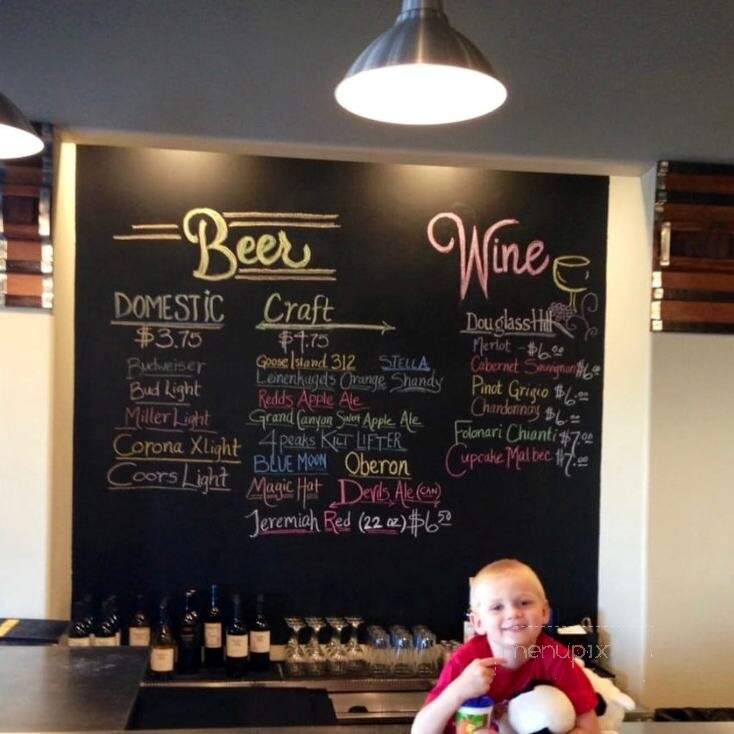 Beer
DOMESTIC
$3.75
Budweiser
Bud Light
Miller Light
Corona Xlight
Coors Light
Craft
$4.75
Goose Island 312 STELLA
Leinenkugels Orange Shandy
Redds Apple Ale
Grand Canyon Apple Ale
4 peaks KILT LIFTER
BLUE MOON Oberon
Magic Hat Devils Ale (CAN)
Jeremiah Red (22 oz) $6.50
Wine
Douglass Hill
Merlot - $6.00
Cabernet Sauvignon $6.00
Pinot Grigio $6.00
Chardonnay $6.00
Folonari Chianti $7.00
Cupcake Malbec $7.00
menupix